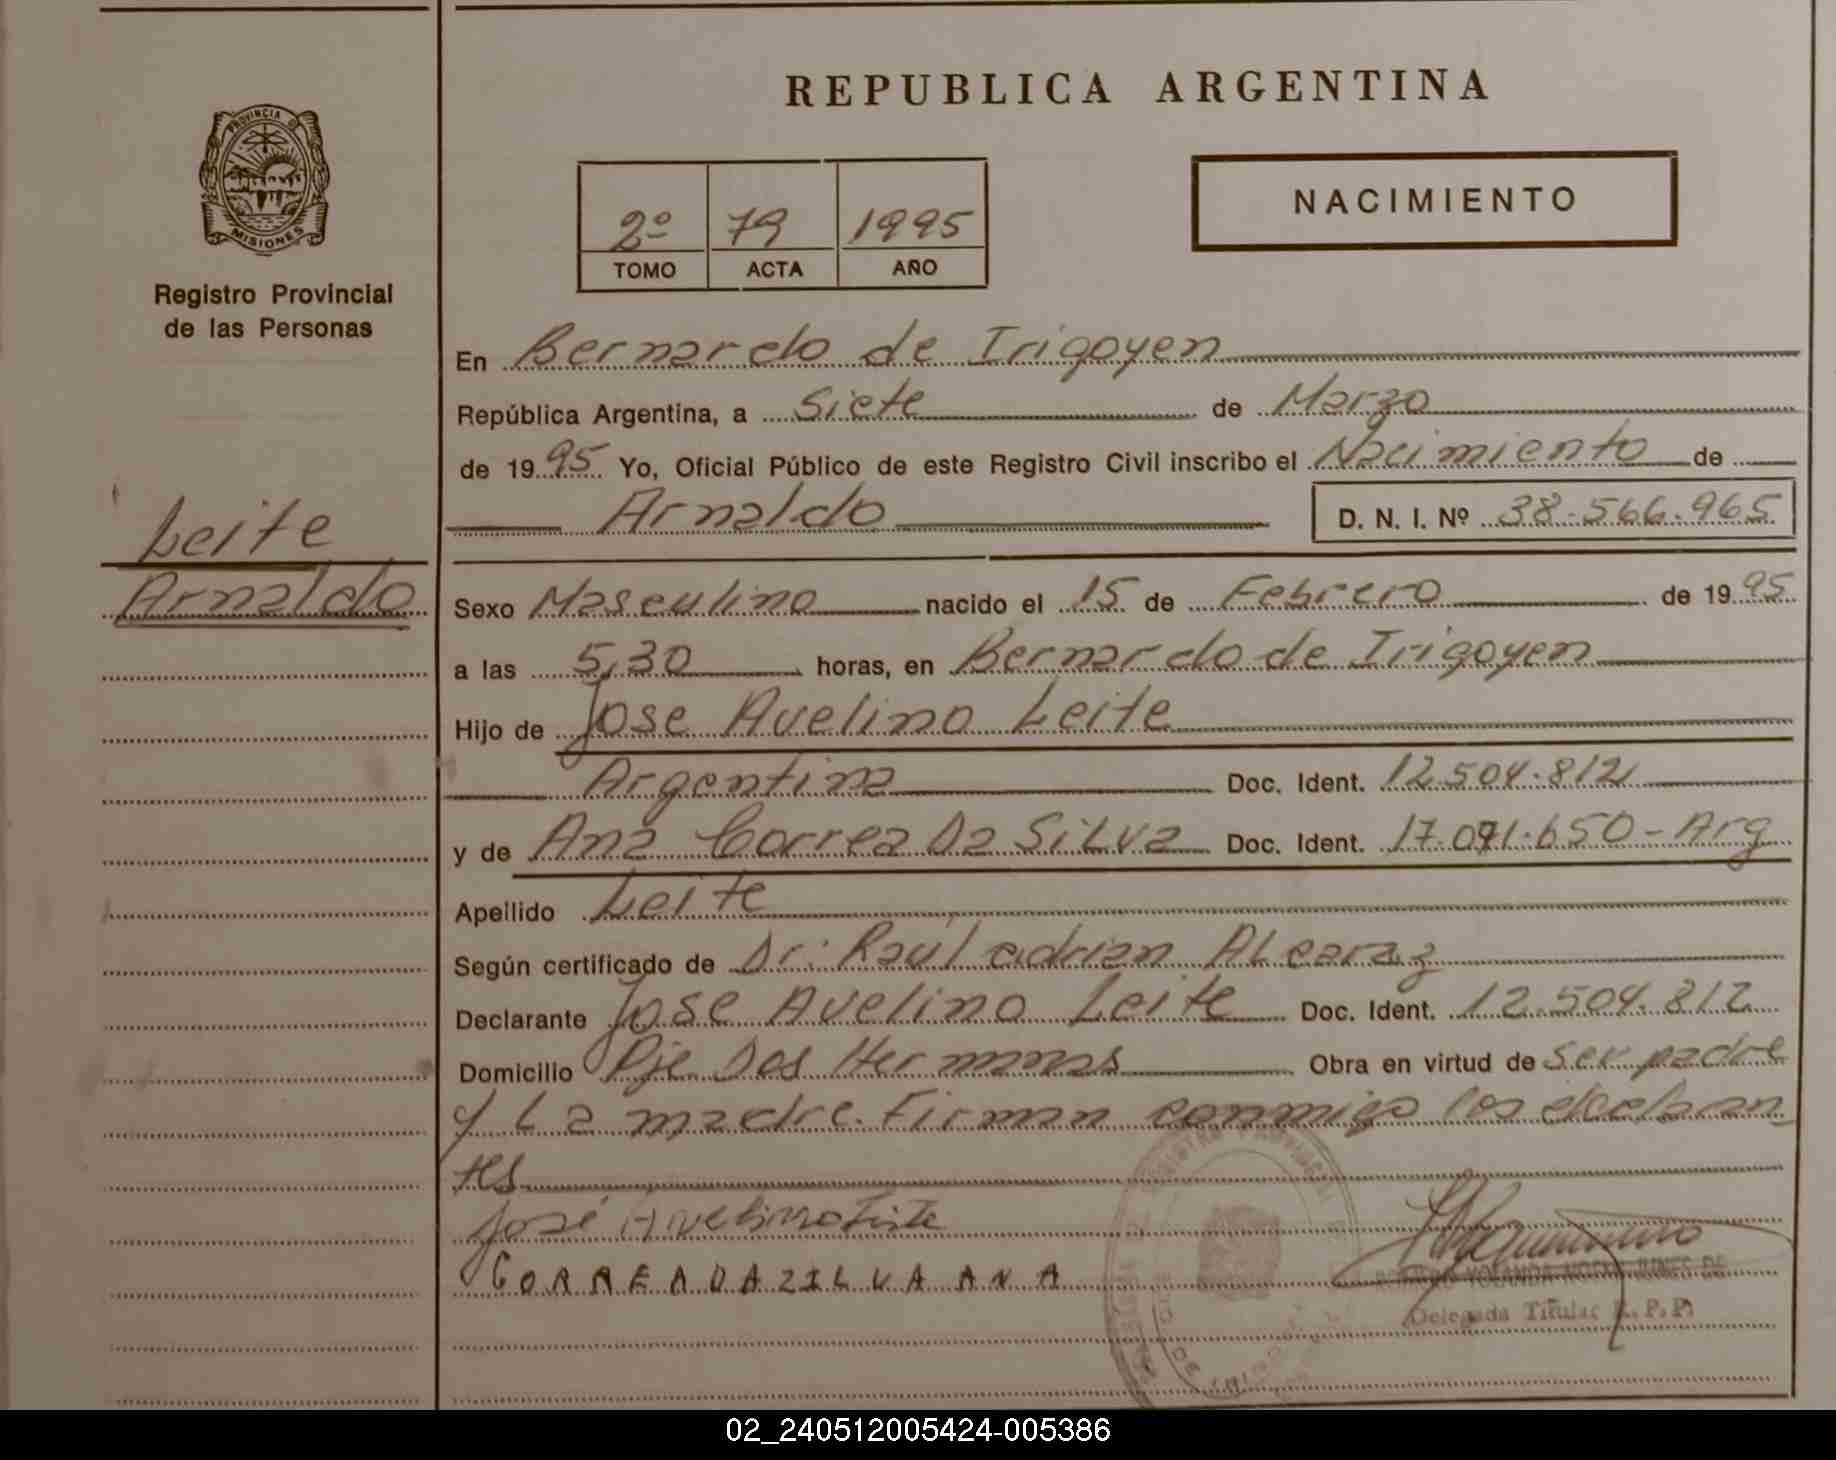 REPUBLICA ARGENTINA
PROVINCIA DE
MISIONES
Registro Provincial
de las Personas
2º 79 1995
TOMO ACTA AÑO
NACIMIENTO
En Bernardo de Irigoyen
República Argentina, a Siete de Marzo
de 1995 Yo, Oficial Público de este Registro Civil inscribo el Nacimiento de
Arnaldo D. N. I. Nº 38.566.965
Leite
Arnaldo
Sexo Masculino nacido el 15 de Febrero de 1995
a las 5,30 horas, en Bernardo de Irigoyen
Hijo de Jose Avelino Leite
Argentina Doc. Ident. 12.504.812
y de Ana Correa Da Silva Doc. Ident. 17.071.650-Arg
Apellido Leite
Según certificado de Dr: Raúl adrian Alcaraz
Declarante Jose Avelino Leite Doc. Ident. 12.504.812
Domicilio Pje Dos Hermanas Obra en virtud de ser padre
y La madre. Firman conmigo los declaran
tes
José Avelino Leite
CORREA DAZILVA ANA
REGISTRO PROVINCIAL
YOLANDA
Delegada Titular R. P. P.
02_240512005424-005386